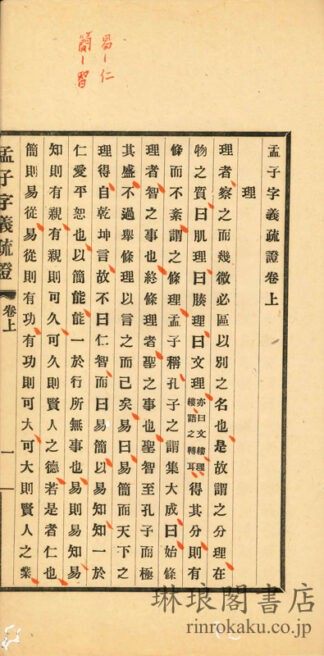 易–仁
簡–智
孟子字義疏證卷上
理
理者察之而幾微必區以別之名也是故謂之分理在
物之質曰肌理曰腠理曰文理亦曰文縷理縷語之轉耳得其分則有
條而不紊謂之條理孟子稱孔子之謂集大成曰始條
理者智之事也終條理者聖之事也聖智至孔子而極
其盛不過舉條理以言之而已矣易曰易簡而天下之
理得自乾坤言故不曰仁智而曰易簡以易知知一於
仁愛平恕也以簡能能一於行所無事也易則易知易
知則有親有親則可久可久則賢人之德若是者仁也
簡則易從易從則有功有功則可大可大則賢人之業
孟子字義疏證 卷上 一
琳琅閣書店
rinrokaku.co.jp